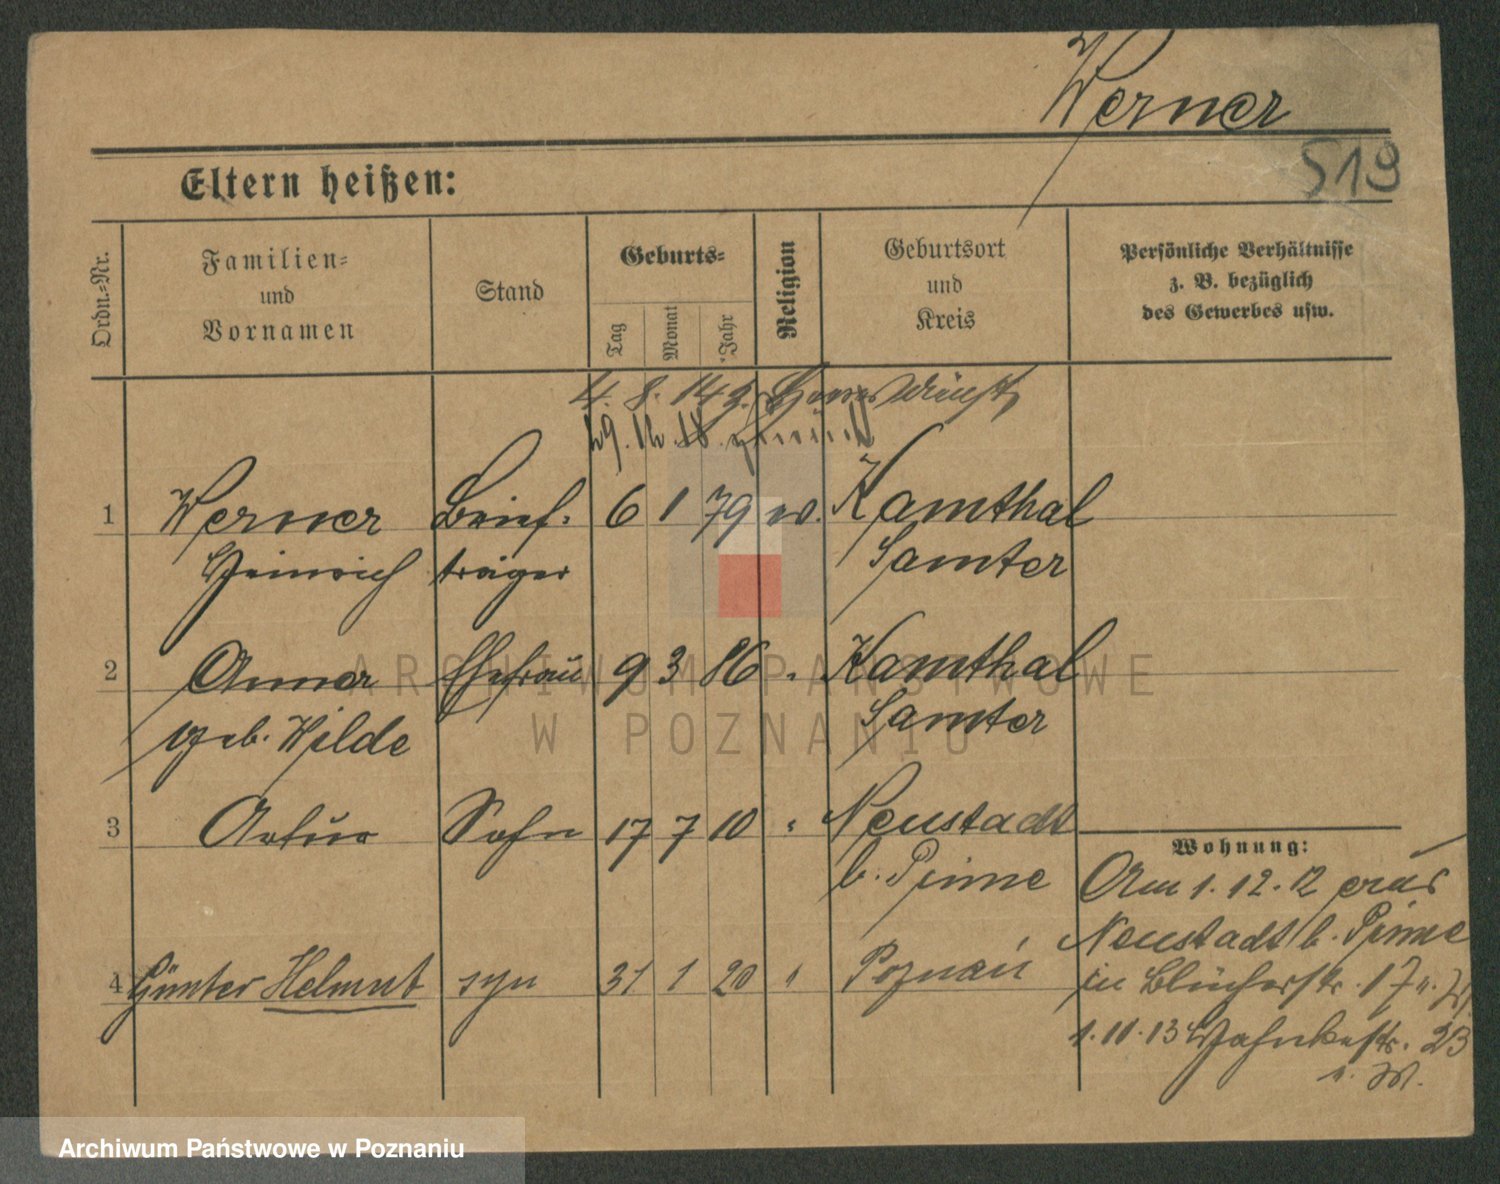 Werner
519
Eltern heißen:
Ordn.-Nr.
Familien-
und
Vornamen
Stand
Geburts-
Tag
Monat
Jahr
Religion
Geburtsort
und
Kreis
Persönliche Verhältnisse
z. B. bezüglich
des Gewerbes usw.
4. 8. 14 z.
29. 12. 18. zurück
1 Werner Brief- 6 1 79 ev. Kamthal
Heinrich träger Samter
2 Anna Ehefrau 9 3 86 " Kamthal
geb. Wilde Samter
3 Artur Sohn 17 7 10 " Neustadt
b. Pinne
Wohnung:
Am 1. 12. 12 aus
Neustadt b. Pinne
in Blücherstr. 17
4 Günter Helmut syn 31 1 20 " Poznań
1. 11. 13 23
ARCHIWUM PAŃSTWOWE
W POZNANIU
Archiwum Państwowe w Poznaniu